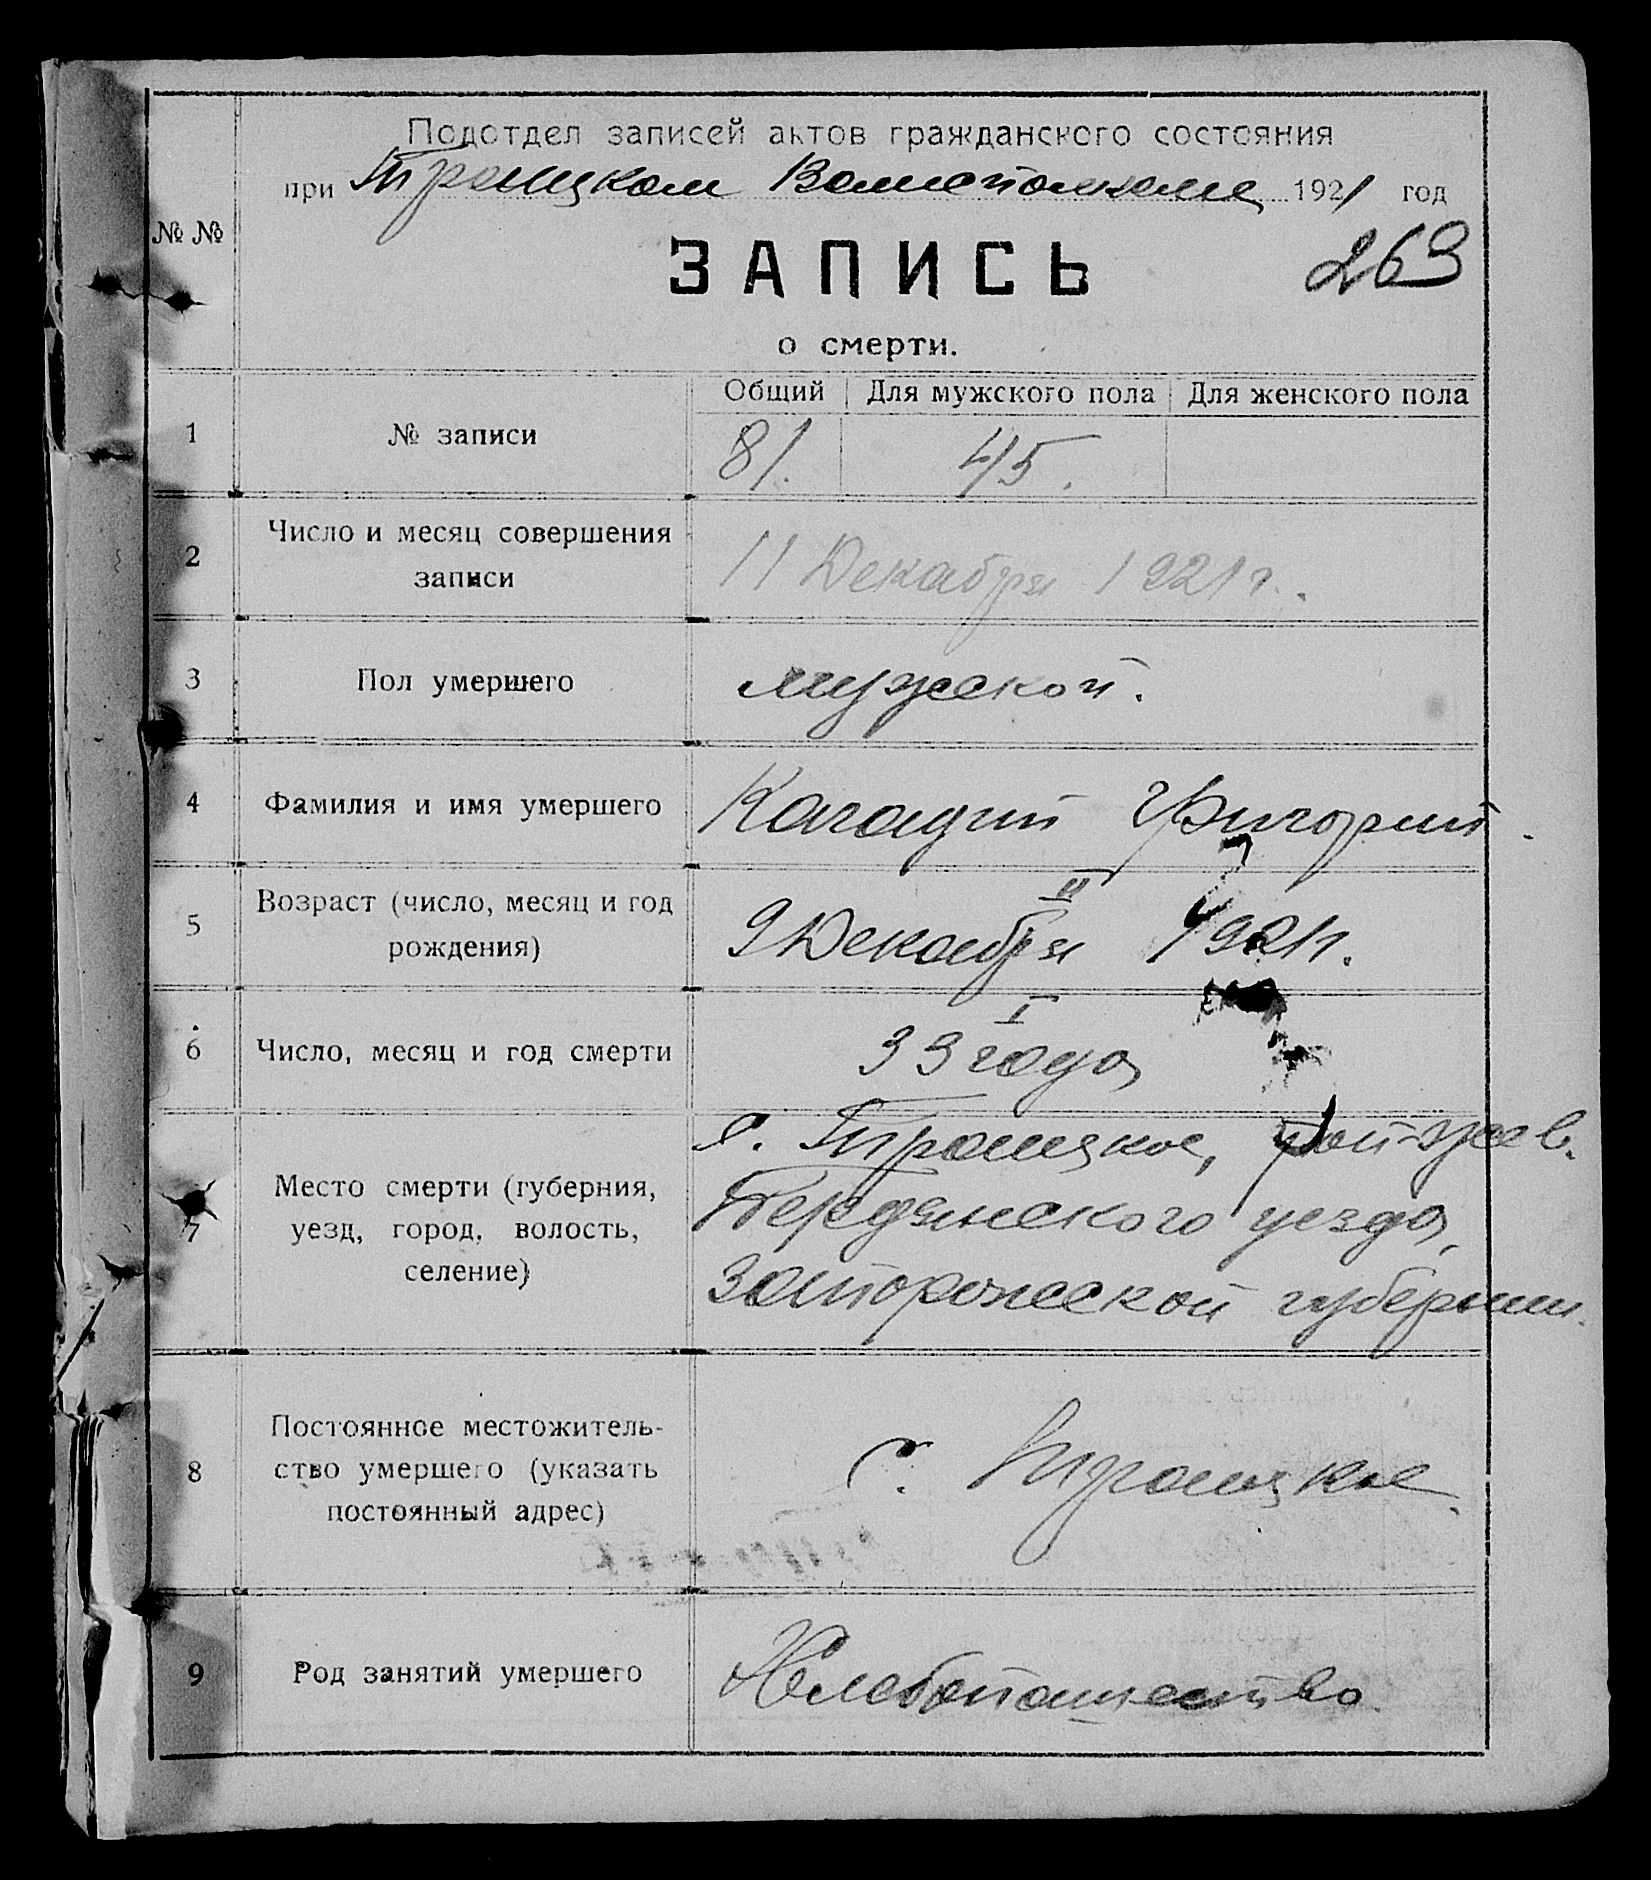 Подотдел записей актов гражданского состояния
при Троицком Волисполкоме 1921 год
№ №
ЗАПИСЬ
263
о смерти.
Общий Для мужского пола Для женского пола
1 № записи 81. 45.
2 Число и месяц совершения записи 11 Декабря 1921 г.
3 Пол умершего мужской.
4 Фамилия и имя умершего Карадий Григорий.
5 Возраст (число, месяц и год рождения) II 9 Декабря 1921 г.
6 Число, месяц и год смерти I 33 года
7 Место смерти (губерния, уезд, город, волость, селение) с. Троицкое, той-же в.
Бердянского уезда,
Запорожской губернии.
8 Постоянное местожитель-
ство умершего (указать
постоянный адрес)
с. Троицкое.
9 Род занятий умершего Хлебопашество.